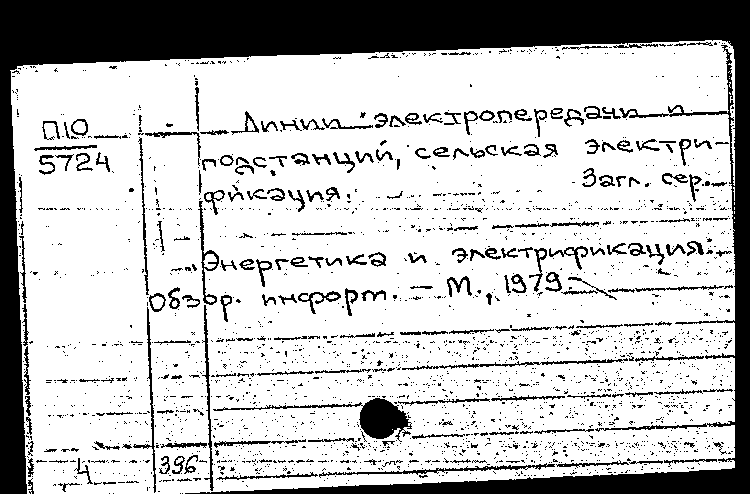 П10
5724
Линии электропередачи и
подстанций, сельская электри-
фикация. Загл. сер.
"Энергетика и электрификация:
Обзор. информ. — М., 1979-
4 396